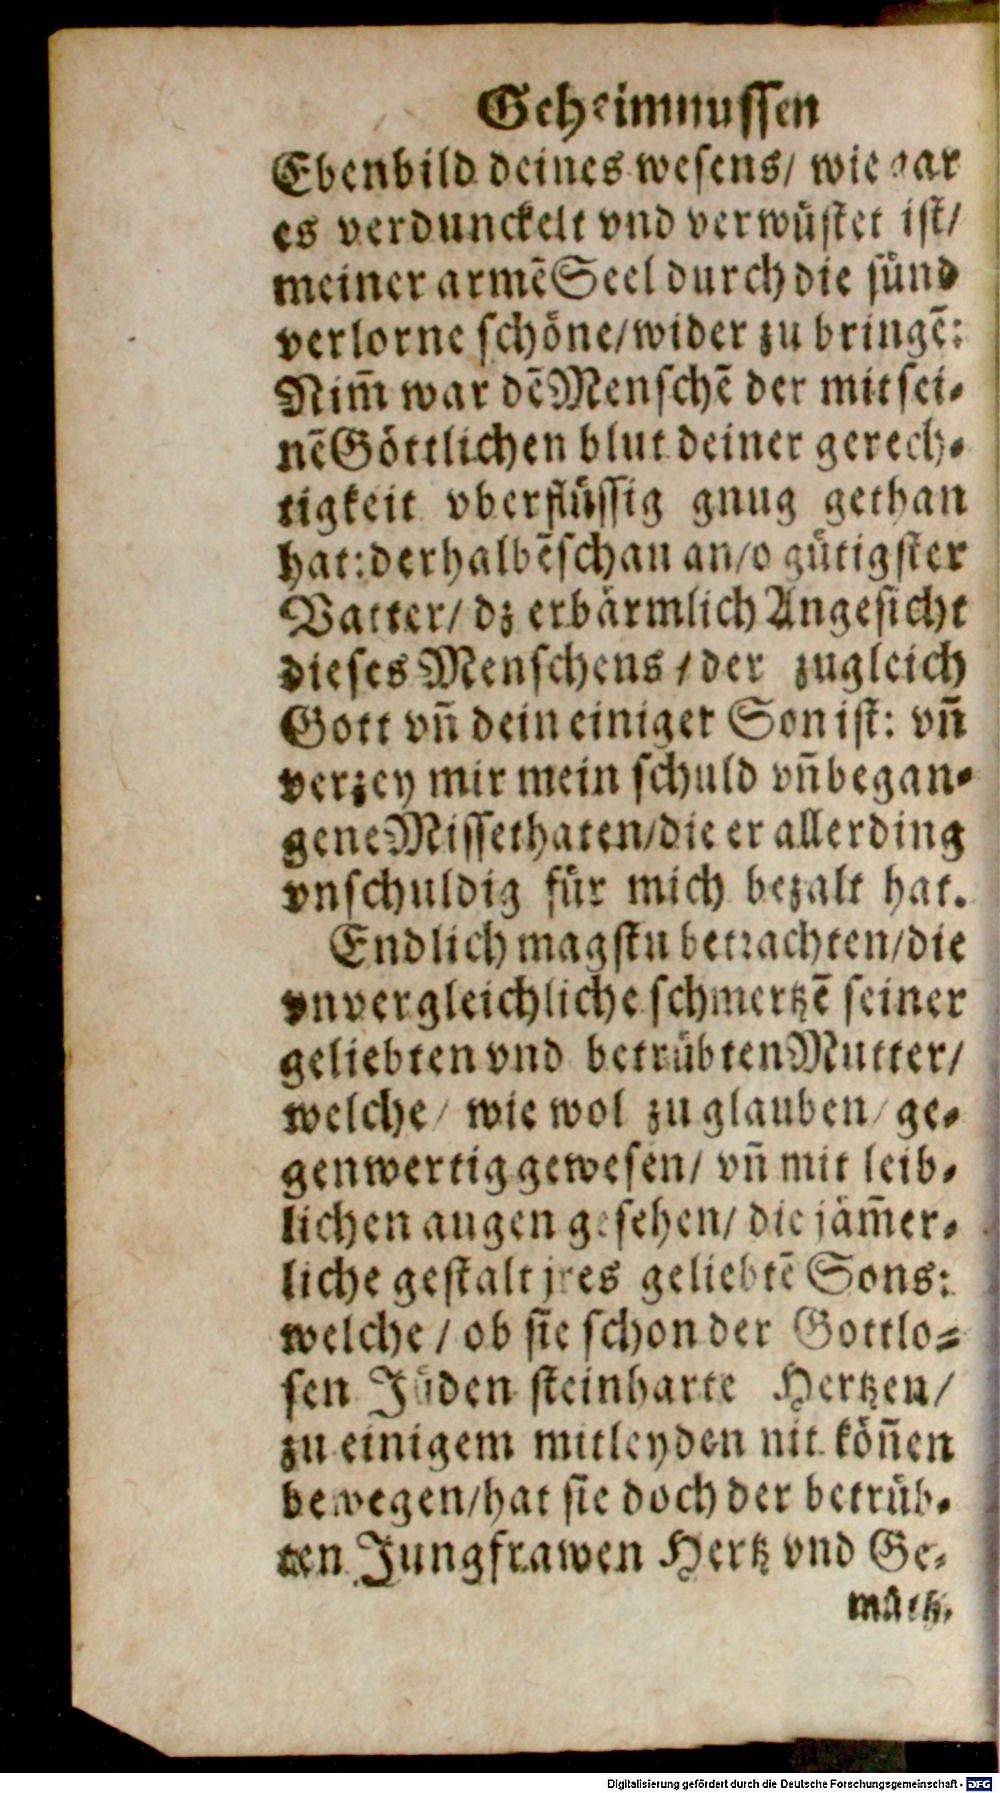 Geheimnussen
Ebenbild deines wesens/ wie gar
es verdunckelt vnd verwüstet ist/
meiner armē Seel durch die sünd
verlorne schöne/wider zu bringē:
Nim̄ war dē Menschē der mit sei-
nē Göttlichen blut deiner gerech-
tigkeit vberflüssig gnug gethan
hat: derhalbē schau an/o gütigster
Vatter/ dz erbärmlich Angesicht
dieses Menschens / der zugleich
Gott vn̄ dein einiger Son ist: vn̄
verzey mir mein schuld vn̄ began-
gene Missethaten/die er allerding
vnschuldig für mich bezalt hat.
Endlich magstu betrachten/die
vnvergleichliche schmertzē seiner
geliebten vnd betrübten Mutter/
welche/ wie wol zu glauben/ ge-
genwertig gewesen/ vn̄ mit leib-
lichen augen gesehen/ die jäm̄er-
liche gestalt jres geliebtē Sons:
welche / ob sie schon der Gottlo-
sen Jüden steinharte Hertzen/
zu einigem mitleyden nit kön̄en
bewegen/hat sie doch der betrüb-
ten Jungfrawen Hertz vnd Ge-
müth,
Digitalisierung gefördert durch die Deutsche Forschungsgemeinschaft - DFG